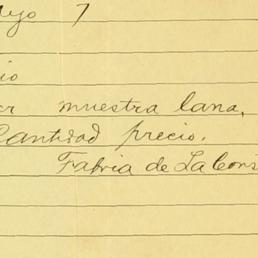 7
muestra lana,
Cantidad precio.
Fabria de La Cons